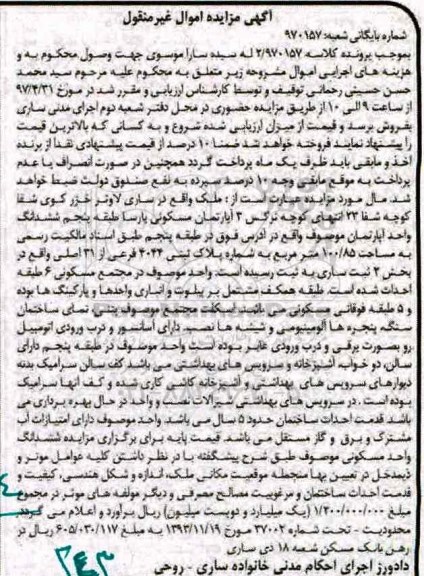 آگهی مزایده اموال غیرمنقول
شماره بایگانی شعبه: ۹۷۰۱۵۷
بموجب پرونده کلاسه: ۲/۹۷۰۱۵۷ له سیده سارا موسوی جهت وصول محکوم به و
هزینه های اجرایی اموال مشروحه زیر متعلق به محکوم علیه مرحوم سید محمد
حسن حسینی رحمانی توقیف و توسط کارشناس ارزیابی و مقرر شد در مورخ ۹۷/۴/۳۱
از ساعت ۹ الی ۱۰ از طریق مزایده حضوری در محل دفتر شعبه دوم اجرای مدنی ساری
بفروش برسد و قیمت از میزان ارزیابی شده شروع و به کسانی که بالاترین قیمت
را پیشنهاد نمایند فروخته خواهد شد ضمنا ۱۰ درصد از قیمت پیشنهادی نقدا از برنده
اخذ و مابقی باید ظرف یک ماه پرداخت گردد همچنین در صورت انصراف یا عدم
پرداخت به موقع مابقی وجه ۱۰ درصد سپرده به نفع صندوق دولت ضبط خواهد
شد. مال مورد مزایده عبارت است از : ملک واقع در ساری لاوتر خزر کوی شفا
کوچه شفا ۲۳ انتهای کوچه نرگس ۲ آپارتمان مسکونی پارسا طبقه پنجم ششدانگ
واحد آپارتمان موصوف واقع در آدرس فوق در طبقه پنجم طبق اسناد مالکیت رسمی
به مساحت ۱۰۰/۸۵ متر مربع به شماره پلاک ثبتی ۳۰۲۴ فرعی از ۳۱ اصلی واقع در
بخش ۲ ثبت ساری به ثبت رسیده است. واحد موصوف در مجتمع مسکونی ۶ طبقه
احداث شده است. طبقه همکف مشتمل بر پیلوت و انباری واحدها و پارکینگ ها بوده
و ۵ طبقه فوقانی مسکونی می باشد. اسکلت مجتمع موصوف بتنی، نمای ساختمان
سنگ، پنجره ها آلومینیومی و شیشه ها نصب. دارای آسانسور و درب ورودی اتومبیل
رو بصورت برقی و درب ورودی عابر بوده است واحد موصوف در طبقه پنجم دارای
سالن، دو خواب، آشپزخانه و سرویس های بهداشتی می باشد کف سالن سرامیک بدنه
دیوارهای سرویس های بهداشتی و آشپزخانه کاشی کاری شده و کف آنها سرامیک
بوده است . در سرویس های بهداشتی شیرآلات نصب و واحد در حال بهره برداری می
باشد قدمت احداث ساختمان حدود ۵ سال می باشد. واحد موصوف دارای امتیازات آب
مشترک و برق و گاز مستقل می باشد. قیمت پایه برای برگزاری مزایده ششدانگ
واحد مسکونی موصوف طبق شرح پیشگفته با در نظر داشتن کلیه عوامل موثر و
ذیمدخل در تعیین بها منجمله موقعیت مکانی ملک، اندازه و شکل هندسی، کیفیت و
قدمت احداث ساختمان و مرغوبیت مصالح مصرفی و دیگر مولفه های موثر در مجموع
مبلغ ۱/۲۰۰/۰۰۰/۰۰۰ (یک میلیارد و دویست میلیون) ریال برآورد و اعلام می گردد.
محدودیت - تحت شماره ۳۷۰۰۲ مورخ ۱۳۹۳/۱۱/۱۹ به مبلغ ۶۰۵/۰۳۰/۱۱۷ ریال در
رهن بانک مسکن شعبه ۱۸ دی ساری
دادورز اجرای احکام مدنی خانواده ساری - روحی